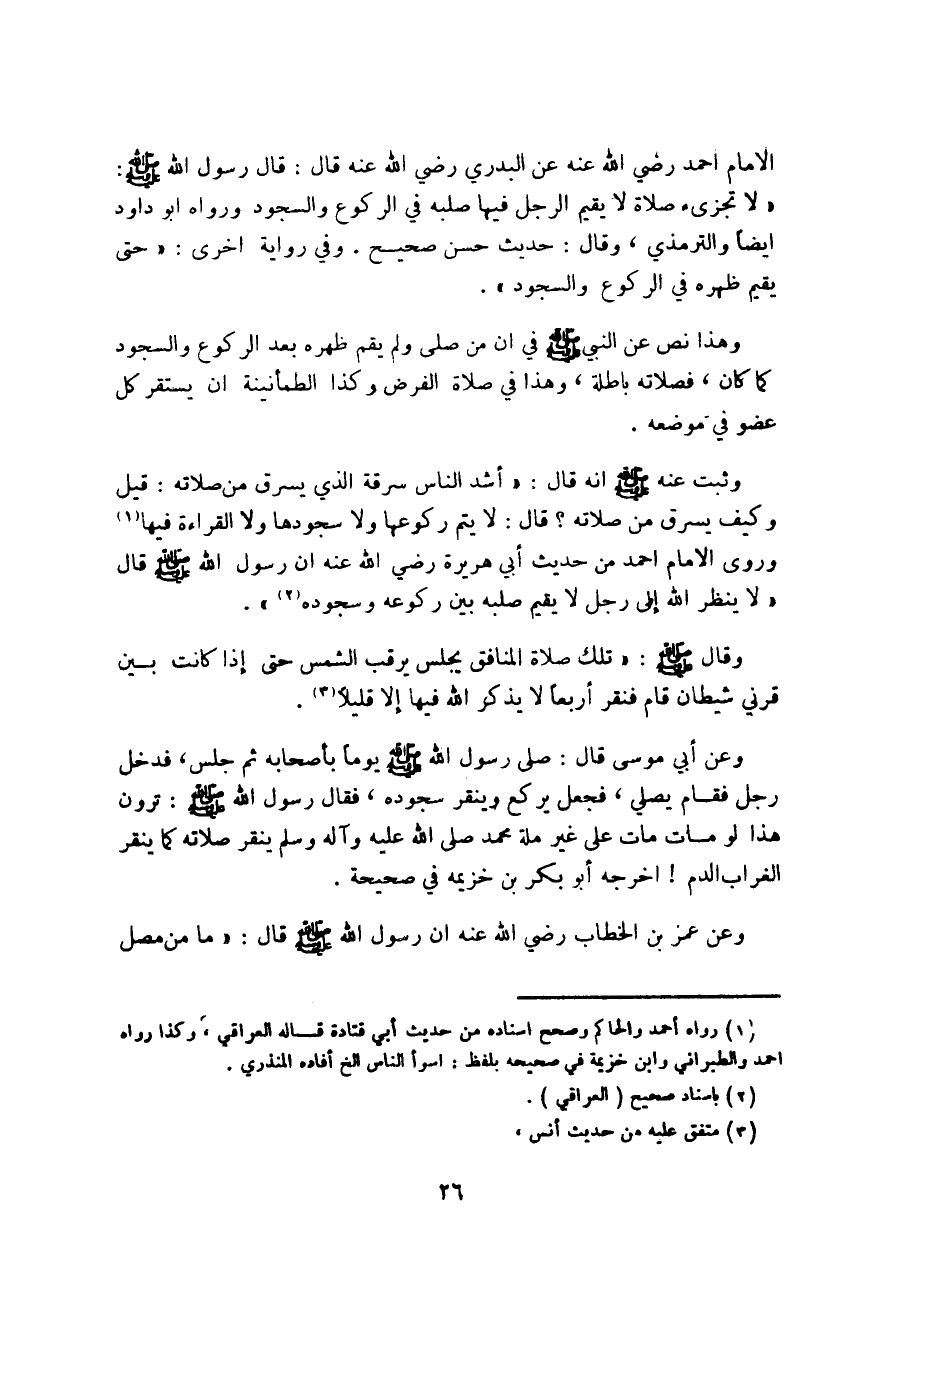 الامام احمد رضي الله عنه عن البدري رضي الله عنه قال : قال رسول الله ﷺ :
« لا تجزىء صلاة لا يقيم الرجل فيها صلبه في الركوع والسجود ورواه ابو داود
ايضاً والترمذي ، وقال : حديث حسن صحيح . وفي رواية اخرى : « حتى
يقيم ظهره في الركوع والسجود » .
وهذا نص عن النبي ﷺ في ان من صلى ولم يقم ظهره بعد الركوع والسجود
كما كان ، فصلاته باطلة ، وهذا في صلاة الفرض وكذا الطمأنينة ان يستقر كل
عضو في موضعه .
وثبت عنه ﷺ انه قال : « أشد الناس سرقة الذي يسرق من صلاته : قيل
وكيف يسرق من صلاته ؟ قال : لا يتم ركوعها ولا سجودها ولا القراءة فيها(١)
وروى الامام احمد من حديث أبي هريرة رضي الله عنه ان رسول الله ﷺ قال
« لا ينظر الله إلى رجل لا يقيم صلبه بين ركوعه وسجوده(٢) » .
وقال ﷺ : « تلك صلاة المنافق يجلس يرقب الشمس حتى إذا كانت بــين
قرني شيطان قام فنقر أربعاً لا يذكر الله فيها إلا قليلاً(٣) .
وعن أبي موسى قال : صلى رسول الله ﷺ يوماً بأصحابه ثم جلس، فدخل
رجل فقــام يصلي ، فجعل يركع وينقر سجوده ، فقال رسول الله ﷺ : ترون
هذا لو مــات مات على غير ملة محمد صلى الله عليه وآله وسلم ينقر صلاته كما ينقر
الغراب الدم ! اخرجه أبو بكر بن خزيمه في صحيحة .
وعن عمر بن الخطاب رضي الله عنه ان رسول الله ﷺ قال : « ما من مصل
(١) رواه أحمد والحاكم وصحح اسناده من حديث أبي قتادة قــاله العراقي ، وكذا رواه
احمد والطبراني وابن خزيمة في صحيحه بلفظ : اسوأ الناس الخ أفاده المنذري .
(٢) باسناد صحيح ( العراقي ) .
(٣) متفق عليه من حديث أنس ،
٢٦